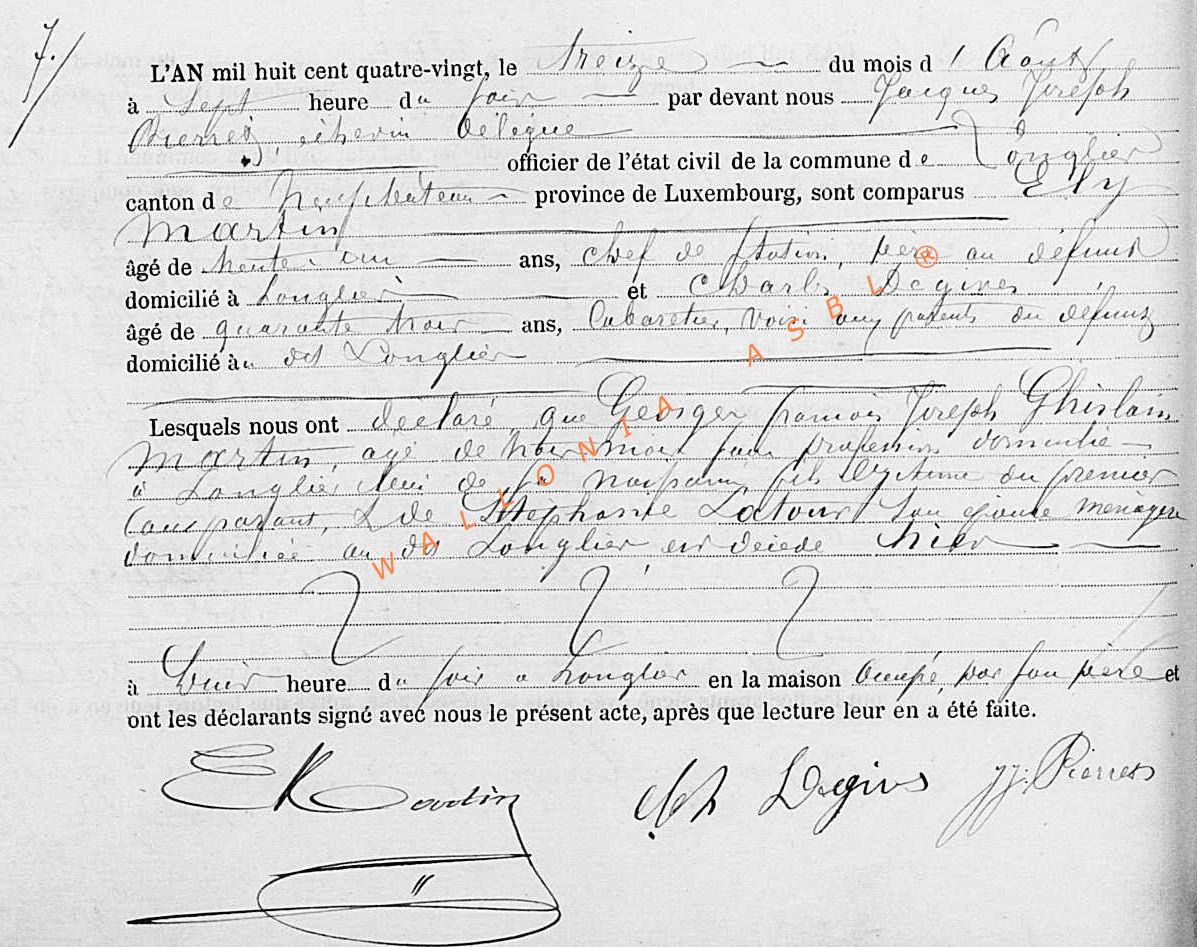 7/
L'AN mil huit cent quatre-vingt, le treize du mois d'Août
à sept heure du soir par devant nous Jacques Joseph
Pierret échevin délégué
officier de l'état civil de la commune de Longlier
canton de Neufchâteau province de Luxembourg, sont comparus Ely
Martin
âgé de trente un ans, chef de station, père au défunt
domicilié à Longlier et Charles Degives
âgé de quarante trois ans, Cabaretier, voisin aux parents du défunt
domicilié au dit Longlier
Lesquels nous ont déclaré que Georges françois Joseph Ghislain
Martin, agé de mois sans profession domicilié
à Longlier lieu de sa naissance, fils légitime du premier
Comparant, & de Stéphanie Latour son épouse ménagère
domiciliée au dit Longlier est décédé hier
à huit heure du soir à Longlier en la maison occupé par son père et
ont les déclarants signé avec nous le présent acte, après que lecture leur en a été faite.
E Martin Ch Degives JJ. Pierret
WALLONIA ASBL ®